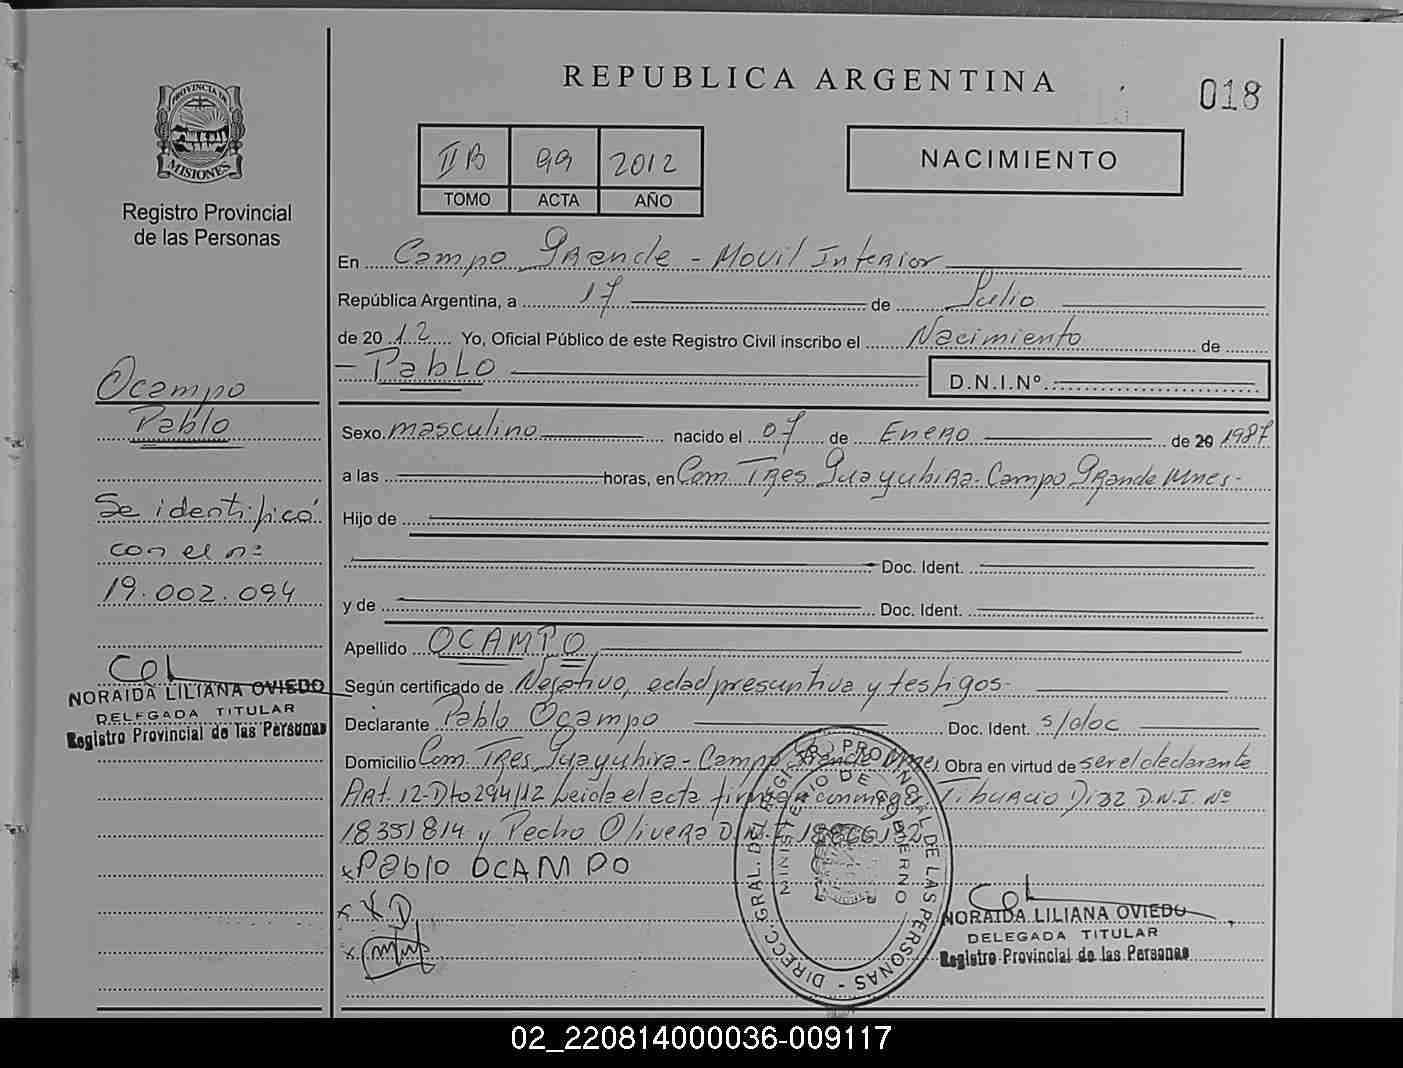 REPUBLICA ARGENTINA
018
PROVINCIA DE
MISIONES
Registro Provincial
de las Personas
IIB 99 2012
TOMO ACTA AÑO
NACIMIENTO
En Campo Grande - Movil Interior
República Argentina, a 17 de Julio
de 20 12 Yo, Oficial Público de este Registro Civil inscribo el Nacimiento de
- Pablo D.N.I.Nº
Ocampo
Pablo
Se identificó
con el nº
19.002.094
NORAIDA LILIANA OVIEDO
DELEGADA TITULAR
Registro Provincial de las Personas
Sexo masculino nacido el 07 de Enero de 20 1987
a las horas, en Com. Tres Guayubira - Campo Grande Mnes -
Hijo de
Doc. Ident.
y de Doc. Ident.
Apellido OCAMPO
Según certificado de Negativo, edad presuntiva y testigos -
Declarante Pablo Ocampo Doc. Ident. s/doc
Domicilio Com. Tres Guayubira - Campo Grande Mnes Obra en virtud de ser el declarante
Art. 12-Dto 294/12 Leida el acta firman conmigo Tiburcio Diaz D.N.I. Nº
18351814 y Pedro Olivera D.N.I.
x Pablo OCAMPO
x. X.D
x.
DIRECC. GRAL. DEL REGISTRO PROVINCIAL DE LAS PERSONAS -
MINISTERIO DE GOBIERNO
NORAIDA LILIANA OVIEDO
DELEGADA TITULAR
Registro Provincial de las Personas
02_220814000036-009117